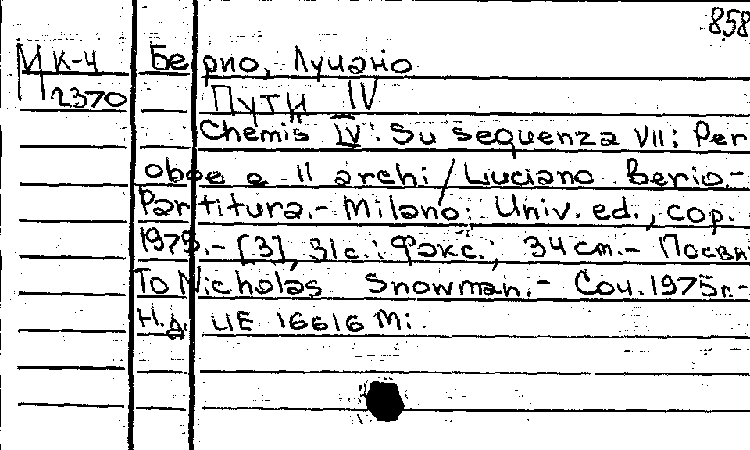 858
М К-4 Берио, Лучано
2370 Пути IV
Chemis IV: Su sequenza VII; Per
oboe e 11 archi / Luciano Berio.-
Partitura.- Milano: Univ. ed., cop.
1975.- [3], 31 с.: факс.; 34 см.- Посвя
To Nicholas Snowman.- Соч. 1975г.-
Н.д. UE 16616 Mi.